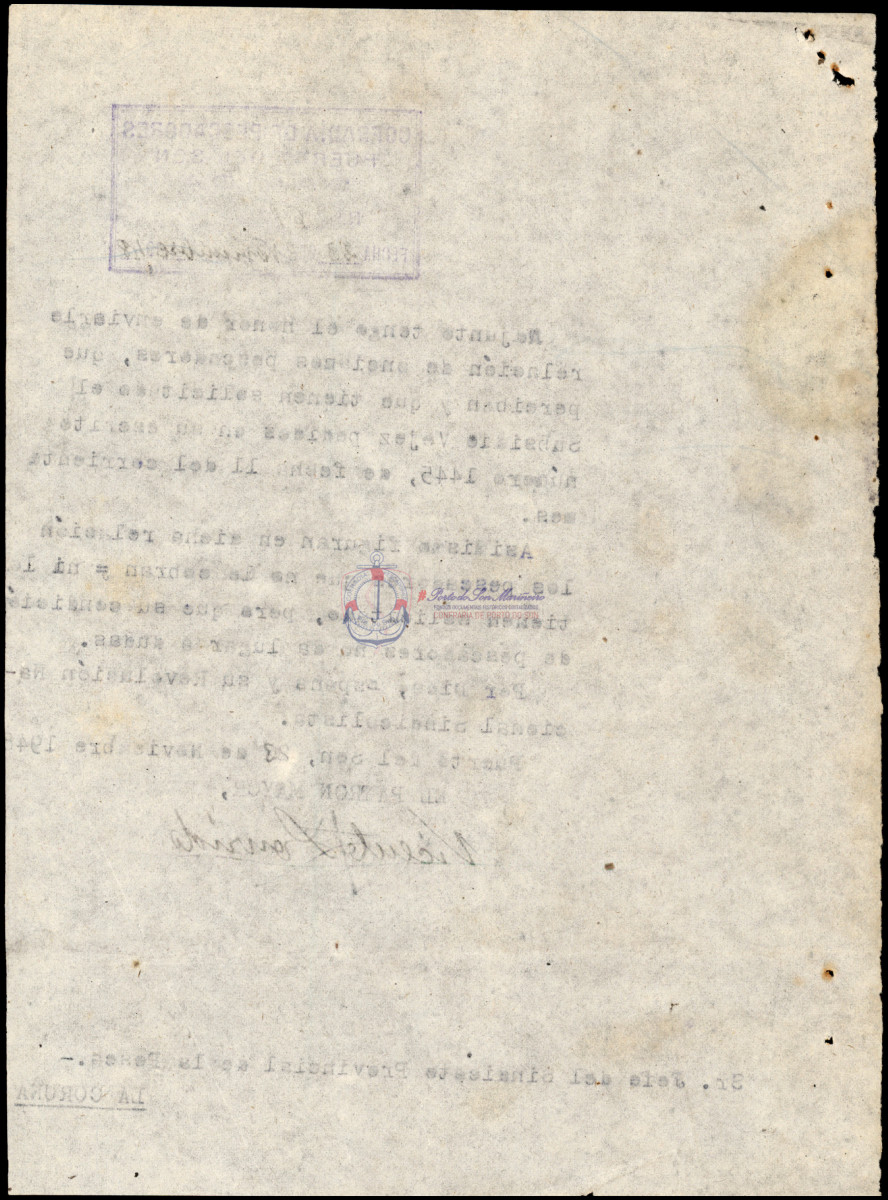 COFRADIA DE PESCADORES
FECHA 23 Noviembre 48
Adjunto tengo el honor de enviarle
relación de ancianos pescadores, que
perciban y que tienen solicitado el
Subsidio Vejez pedidos en su escrito
número 1445, de fecha 11 del corriente
mes.
Asimismo figuran en dicha relación
los pescadores que no lo cobran = ni lo
tienen solicitado, pero que su condición
de pescadores no da lugar a dudas.
Por Dios, España y su Revolución Na-
cional Sindicalista.
Puerto del Son, 23 de Noviembre 194
EL PATRON MAYOR,
Vicente Lourido
Sr. Jefe del Sindicato Provincial de la Pesca.-
LA CORUÑA
Porto do Son Mariñeiro
CONFRARÍA DE PORTO DO SON